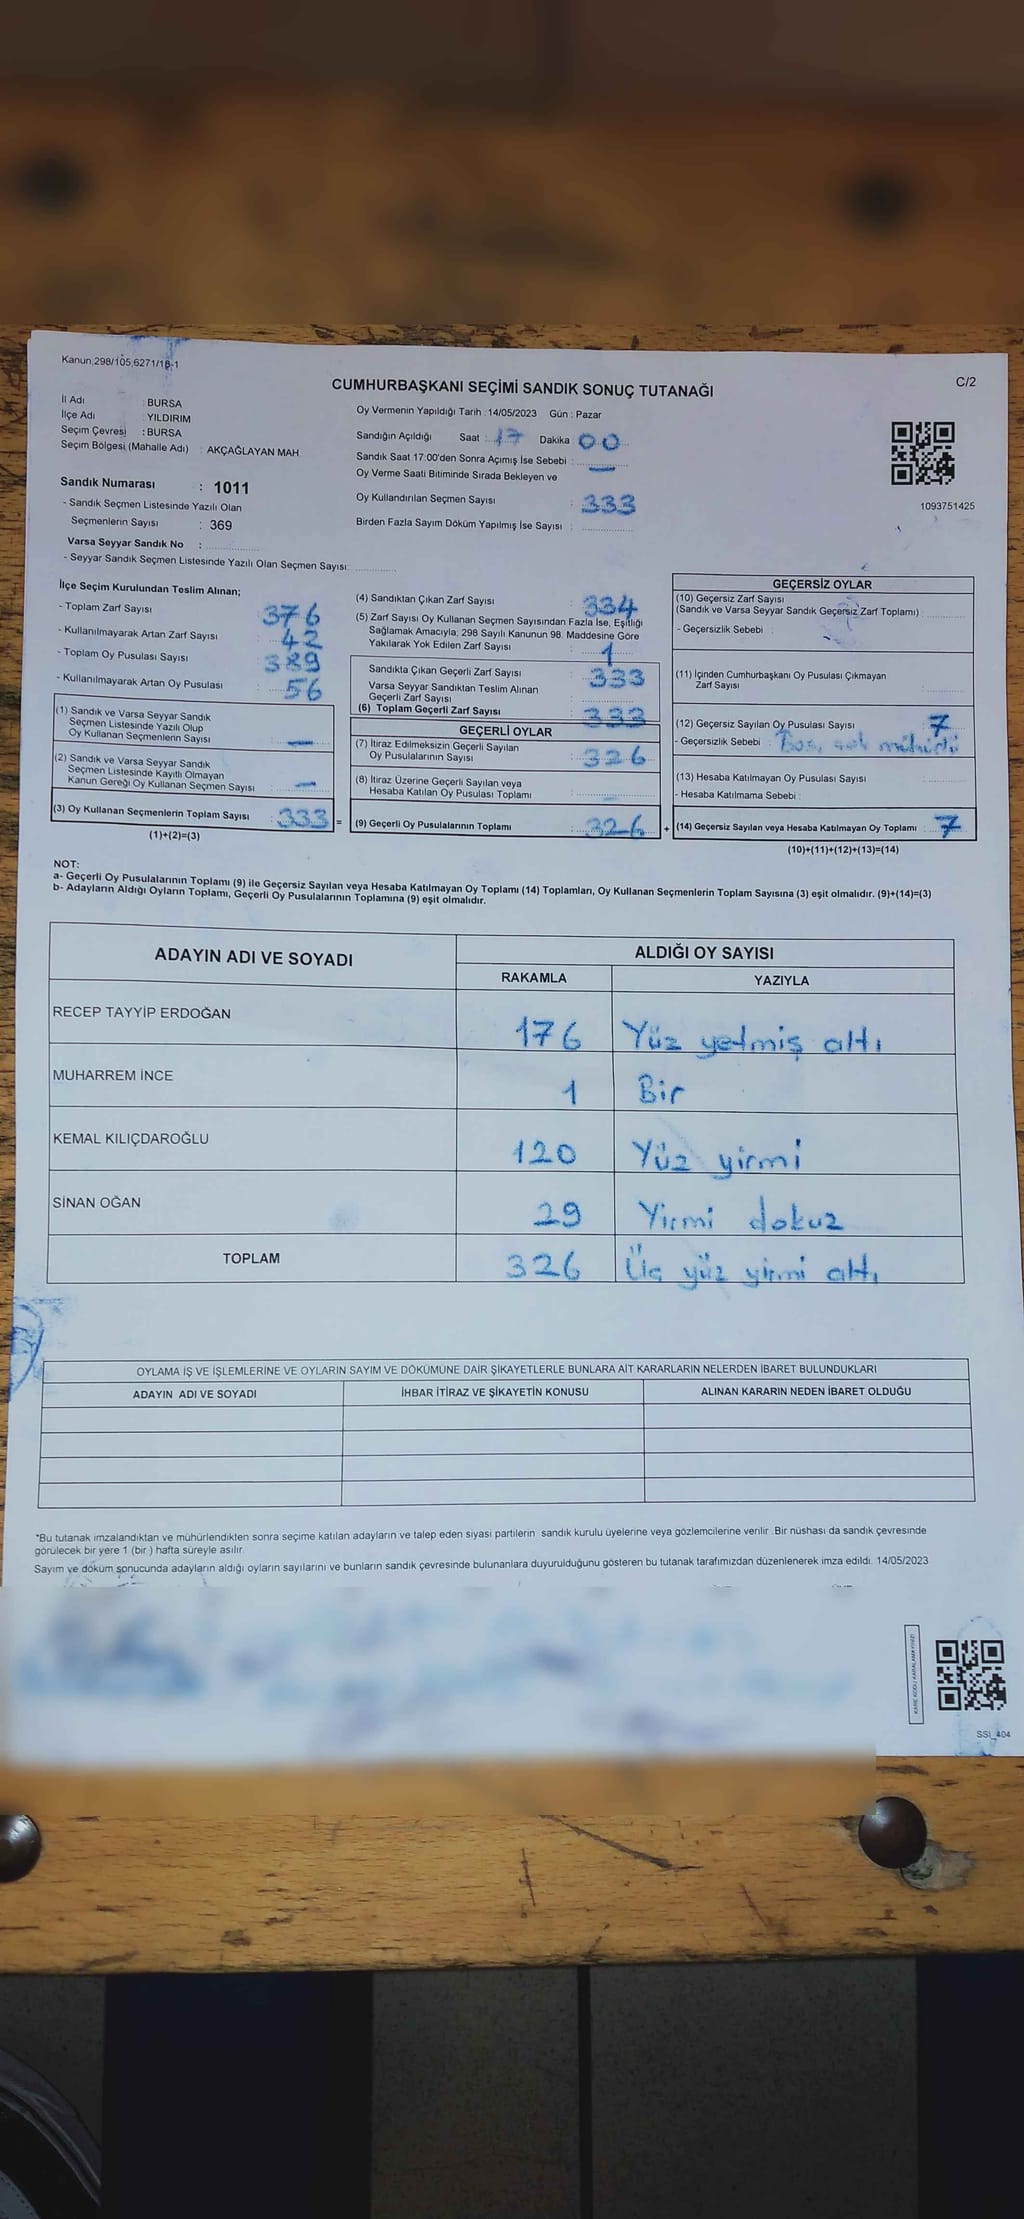 Kanun,298/105,6271/18-1
C/2
CUMHURBAŞKANI SEÇİMİ SANDIK SONUÇ TUTANAĞI
İl Adı : BURSA
İlçe Adı : YILDIRIM
Seçim Çevresi : BURSA
Seçim Bölgesi (Mahalle Adı) : AKÇAĞLAYAN MAH.
Sandık Numarası : 1011
- Sandık Seçmen Listesinde Yazılı Olan
Seçmenlerin Sayısı : 369
Varsa Seyyar Sandık No :
- Seyyar Sandık Seçmen Listesinde Yazılı Olan Seçmen Sayısı:
Oy Vermenin Yapıldığı Tarih : 14/05/2023 Gün : Pazar
Sandığın Açıldığı Saat : 17 Dakika : 00
Sandık Saat 17:00'den Sonra Açımış İse Sebebi : —
Oy Verme Saati Bitiminde Sırada Bekleyen ve
Oy Kullandırılan Seçmen Sayısı : 333
Birden Fazla Sayım Döküm Yapılmış İse Sayısı :
1093751425
İlçe Seçim Kurulundan Teslim Alınan;
- Toplam Zarf Sayısı : 376
- Kullanılmayarak Artan Zarf Sayısı : 42
- Toplam Oy Pusulası Sayısı : 389
- Kullanılmayarak Artan Oy Pusulası : 56
(1) Sandık ve Varsa Seyyar Sandık
Seçmen Listesinde Yazılı Olup
Oy Kullanan Seçmenlerin Sayısı : —
(2) Sandık ve Varsa Seyyar Sandık
Seçmen Listesinde Kayıtlı Olmayan
Kanun Gereği Oy Kullanan Seçmen Sayısı : —
(3) Oy Kullanan Seçmenlerin Toplam Sayısı : 333 =
(1)+(2)=(3)
(4) Sandıktan Çıkan Zarf Sayısı : 334
(5) Zarf Sayısı Oy Kullanan Seçmen Sayısından Fazla İse, Eşitliği
Sağlamak Amacıyla; 298 Sayılı Kanunun 98. Maddesine Göre
Yakılarak Yok Edilen Zarf Sayısı : 1
Sandıkta Çıkan Geçerli Zarf Sayısı : 333
Varsa Seyyar Sandıktan Teslim Alınan
Geçerli Zarf Sayısı :
(6) Toplam Geçerli Zarf Sayısı : 333
GEÇERLİ OYLAR
(7) İtiraz Edilmeksizin Geçerli Sayılan
Oy Pusulalarının Sayısı : 326
(8) İtiraz Üzerine Geçerli Sayılan veya
Hesaba Katılan Oy Pusulası Toplamı : —
(9) Geçerli Oy Pusulalarının Toplamı : 326 +
GEÇERSİZ OYLAR
(10) Geçersiz Zarf Sayısı
(Sandık ve Varsa Seyyar Sandık Geçersiz Zarf Toplamı) :
- Geçersizlik Sebebi :
(11) İçinden Cumhurbaşkanı Oy Pusulası Çıkmayan
Zarf Sayısı :
(12) Geçersiz Sayılan Oy Pusulası Sayısı : 7
- Geçersizlik Sebebi : Boş, çok mühürlü
(13) Hesaba Katılmayan Oy Pusulası Sayısı :
- Hesaba Katılmama Sebebi :
(14) Geçersiz Sayılan veya Hesaba Katılmayan Oy Toplamı : 7
(10)+(11)+(12)+(13)=(14)
NOT:
a- Geçerli Oy Pusulalarının Toplamı (9) ile Geçersiz Sayılan veya Hesaba Katılmayan Oy Toplamı (14) Toplamları, Oy Kullanan Seçmenlerin Toplam Sayısına (3) eşit olmalıdır. (9)+(14)=(3)
b- Adayların Aldığı Oyların Toplamı, Geçerli Oy Pusulalarının Toplamına (9) eşit olmalıdır.
ADAYIN ADI VE SOYADI ALDIĞI OY SAYISI
RAKAMLA YAZIYLA
RECEP TAYYİP ERDOĞAN 176 Yüz yetmiş altı
MUHARREM İNCE 1 Bir
KEMAL KILIÇDAROĞLU 120 Yüz yirmi
SİNAN OĞAN 29 Yirmi dokuz
TOPLAM 326 Üç yüz yirmi altı
OYLAMA İŞ VE İŞLEMLERİNE VE OYLARIN SAYIM VE DÖKÜMÜNE DAİR ŞİKAYETLERLE BUNLARA AİT KARARLARIN NELERDEN İBARET BULUNDUKLARI
ADAYIN ADI VE SOYADI İHBAR İTİRAZ VE ŞİKAYETİN KONUSU ALINAN KARARIN NEDEN İBARET OLDUĞU
*Bu tutanak imzalandıktan ve mühürlendikten sonra seçime katılan adayların ve talep eden siyasi partilerin sandık kurulu üyelerine veya gözlemcilerine verilir. Bir nüshası da sandık çevresinde
görülecek bir yere 1 (bir ) hafta süreyle asılır.
Sayım ve döküm sonucunda adayların aldığı oyların sayılarını ve bunların sandık çevresinde bulunanlara duyurulduğunu gösteren bu tutanak tarafımızdan düzenlenerek imza edildi. 14/05/2023
KARE KODU KARALAMAYINIZ!
SSİ_404